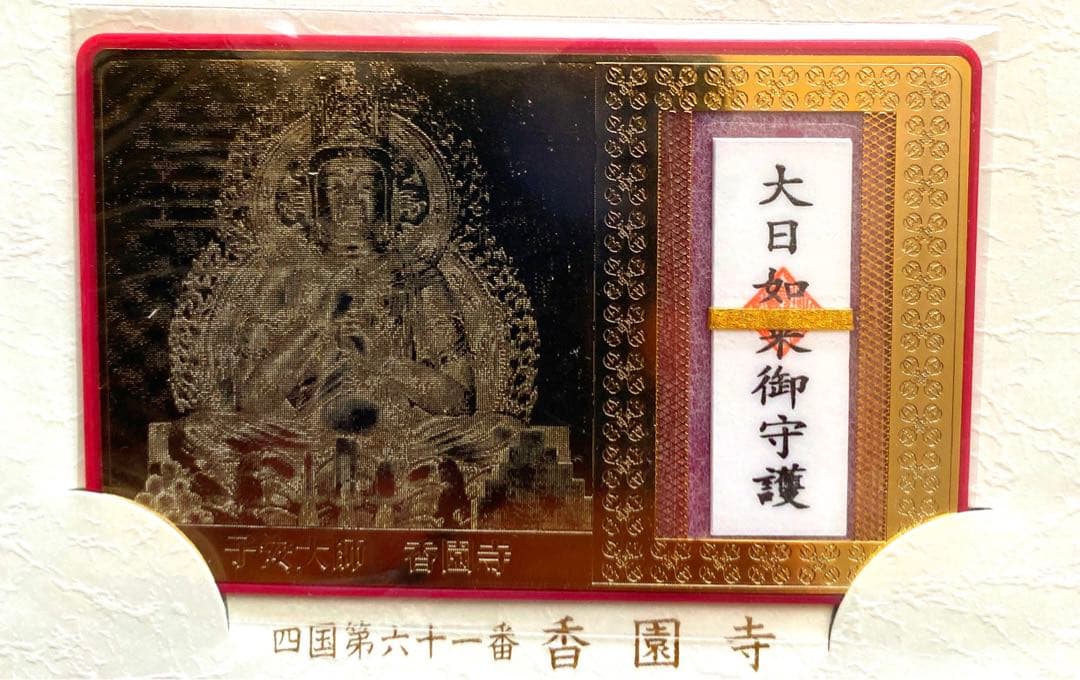 大日如来御守護
子安大師 香園寺
四国第六十一番 香園寺